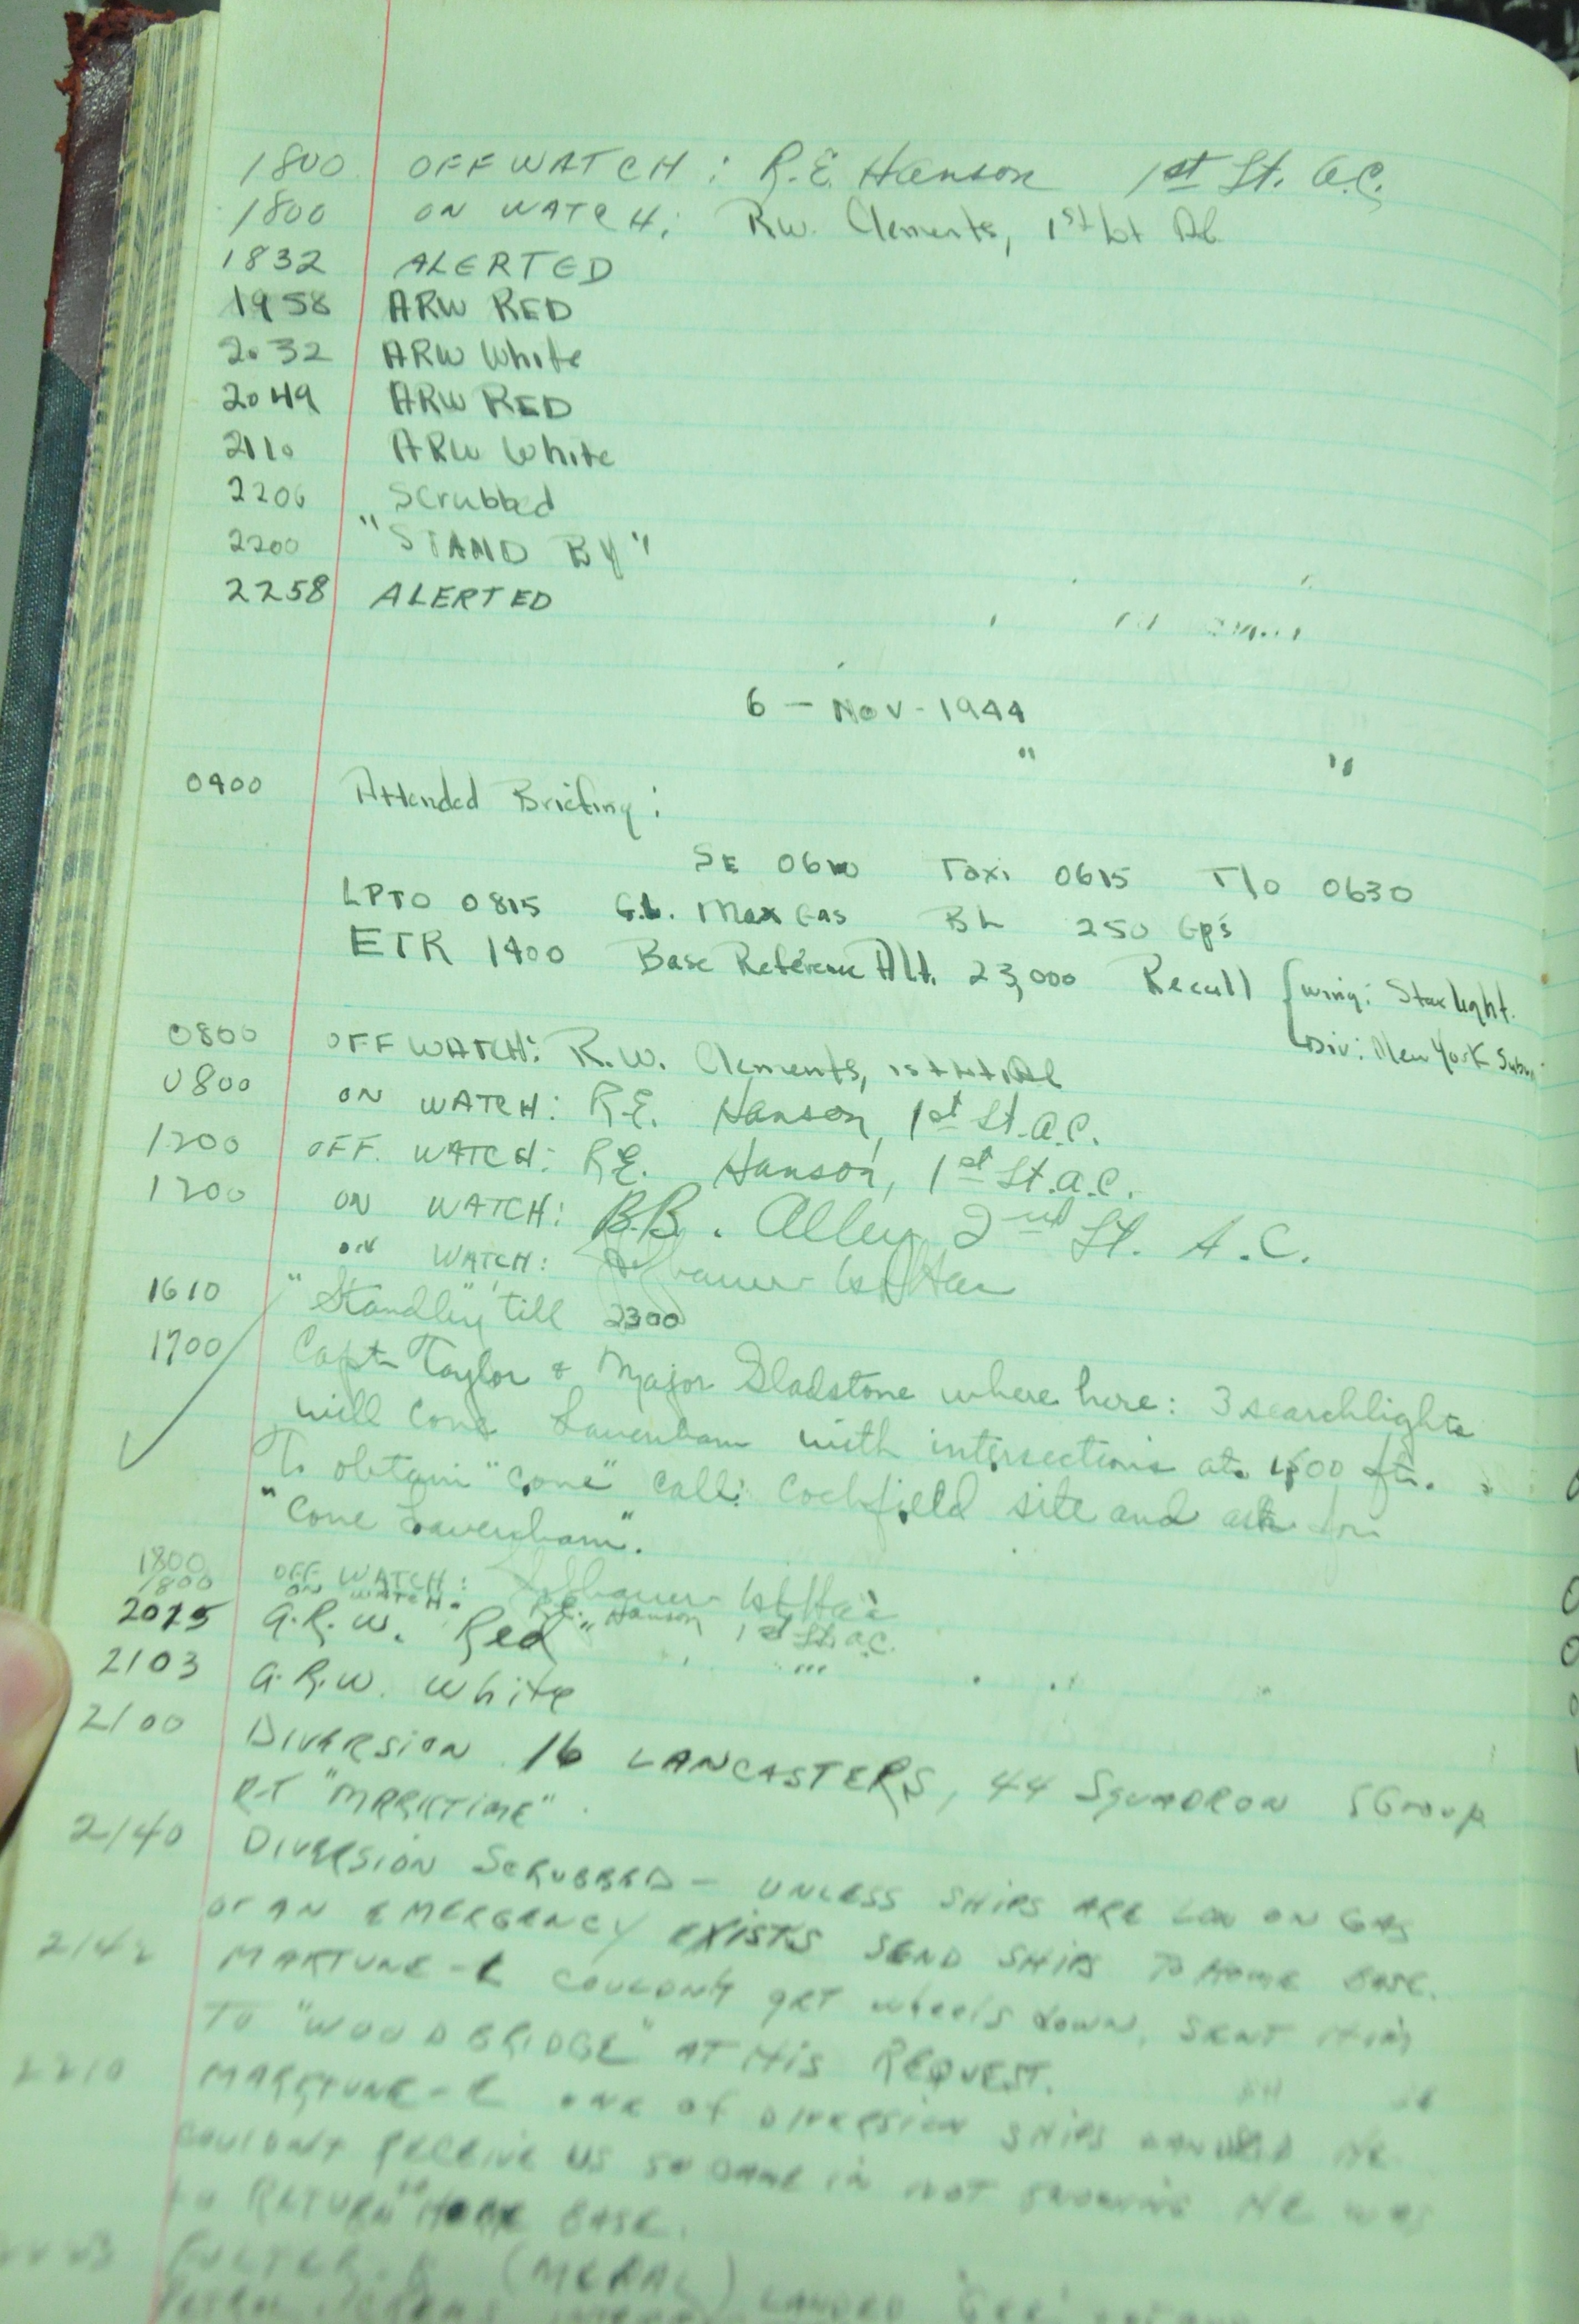 1800 OFF WATCH: R.E. Hanson 1st Lt. A.C.
1800 ON WATCH: RW. Clements, 1st Lt AC
1832 ALERTED
1958 ARW RED
2032 ARW White
2049 ARW RED
2110 ARW White
2206 Scrubbed
2200 "STAND BY"
2258 ALERTED
6 - Nov - 1944
0400 Attended Briefing:
SE 0610 Taxi 0615 T/o 0630
LPTO 0815 G.L. Max Gas BL 250 Gp's
ETR 1400 Base Reference Alt. 23,000 Recall Wing: Starlight.
Div: New York
0800 OFF WATCH: R.W. Clements, 1st Lt AC
0800 ON WATCH: R.E. Hanson, 1st Lt. A.C.
1200 OFF. WATCH: R.E. Hanson, 1st Lt. A.C.
1200 ON WATCH: B.B. Alley 2nd Lt. A.C.
ON WATCH:
1610 "Standby" till 2300
1700 Capt Taylor & Major Gladstone where here: 3 searchlights
will cone Lavenham with intersections at 1500 ft.
To obtain "cone" call: Cockfield site and ask for
"Cone Lavenham".
1800 OFF WATCH:
1800 ON WATCH. R.E. Hanson 1st Lt. A.C.
2015 A.R.W. Red"
2103 A.R.W. White
2100 DIVERSION 16 LANCASTERS, 44 SQUADRON 5 Group
R-T "MARKTIME".
2140 DIVERSION SCRUBBED - UNLESS SHIPS ARE LOW ON GAS
OR AN EMERGENCY EXISTS SEND SHIPS TO HOME BASE.
COULDN'T GET wheels down, SENT HIM
TO "WOODBRIDGE" AT HIS REQUEST.
2210 ONE OF DIVERSION SHIPS LANDED HE
COULDN'T RECEIVE US SO CAME IN NOT KNOWING HE WAS
TO RETURN TO HOME BASE.
LANDED